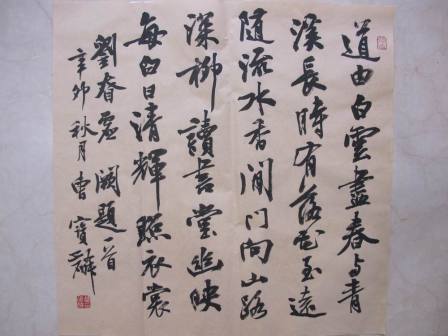 道由白雲盡春与青
溪長時有落花至遠
隨流水香閒門向山路
深柳讀書堂幽映
每白日清輝照衣裳
劉眘虛闕題一首
辛卯秋月曹寶麟